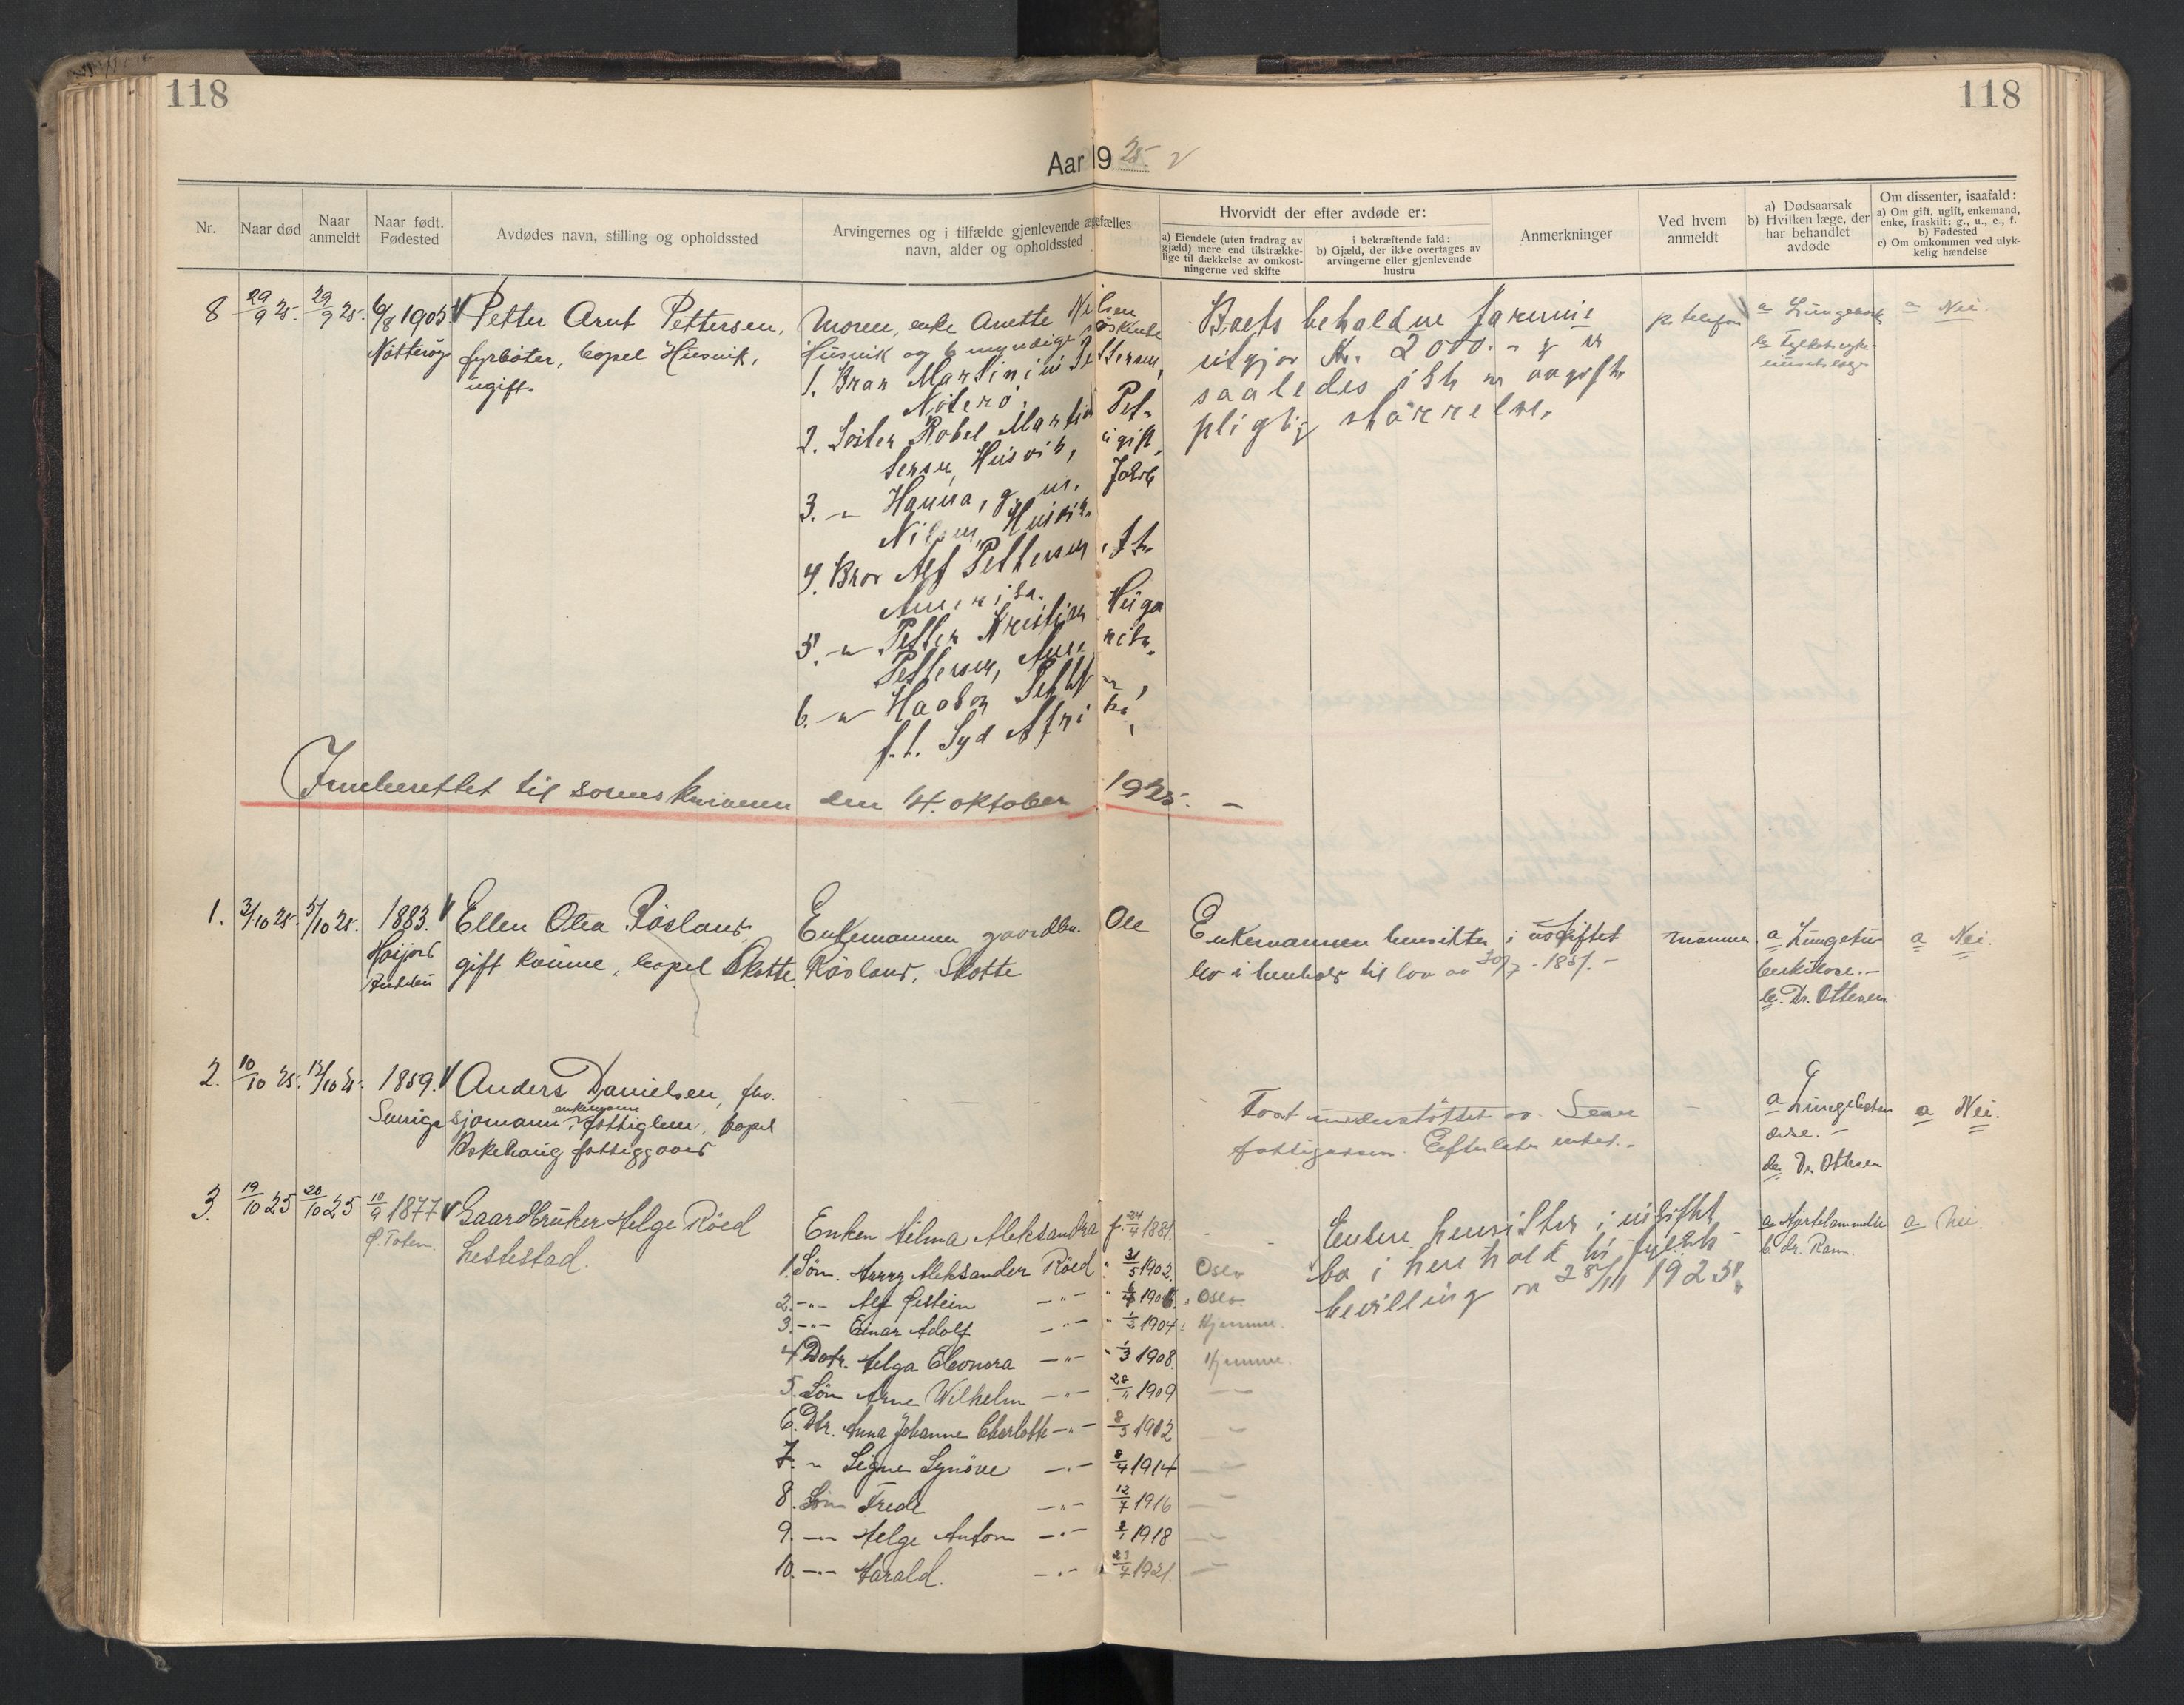 118
118
Aar 1925
Nr.
Naar død
Naar anmeldt
Naar født. Fødested
Avdødes navn, stilling og opholdssted
Arvingernes og i tilfælde gjenlevende ægtefælles navn, alder og opholdssted
Hvorvidt der efter avdøde er:
a) Eiendele (uten fradrag av gjæld) mere end tilstrækkelige til dækkelse av omkostningerne ved skifte
i bekræftende fald:
b) Gjæld, der ikke overtages av arvingerne eller gjenlevende hustru
Anmerkninger
Ved hvem anmeldt
a) Dødsaarsak
b) Hvilken læge, der har behandlet avdøde
Om dissenter, isaafald:
a) Om gift, ugift, enkemand, enke, fraskilt: g., u., e., f.
b) Fødested
c) Om omkommen ved ulykkelig hændelse
8 29/9 25. 29/9 25. 6/8 1905 Petter Arnt Pettersen,
Nøtterøy fyrbøter, bopel Husvik,
ugift.
Moren, enke Anette Nilsen
Husvik og 6 myndige søskende
1. Bror Martinius Pettersen,
Nøterø.
2. Søster Robel Martin Pet-
tersen, Husvik, ugift.
3. -"- Hanna, g. m. Jakob
Nilsen, Husvik.
4. Bror Alf Pettersen, f.t.
Amerika.
5. -"- Petter Kristian Hugo
Pettersen, Amerika.
6. -"- Haakon Petters
f.t. Syd Afrika,
Boets beholdne formue
utgjør Kr. 2000.- og er
saaledes ikke av avgifts
pligtig størrelse.
pr. telefon
a Lungebet.
a Nei.
Innberettet til sorenskriveren den 14. oktober 1925. -
1. 3/10 25. 5/10 25. 1883. Ellen Olea Røsland.
Høijord
Andebu
gift kvinne, bopel Skotte.
Enkemannen gaardbr. Ole
Røsland, Skotte
Enkemannen hensitter i uskiftet
bo i henhold til lov av 30/7 - 1851. -
mannen.
a Lungetu-
berkulose. -
b. Dr. Ottesen
a Nei.
2. 10/10 25. 12/10 25. 1859. Anders Danielsen, fhv.
Sverige sjømann, enkemann fattiglem, bopel
Askehaug fattiggaard
Fast understøttet av Sem
fattigvesen. Efterlater intet. -
a Lungebeten-
delse. -
b Dr. Ottesen
a Nei.
3. 19/10 25 20/10 25 10/9 1877 Gaardbruker Helge Röed
Ø. Toten. Lestestad.
Enken Hilma Aleksandra f. 24/4 1881.
1. Sön. Harry Aleksander Röed " 31/5 1902. Oslo
2. -"- Alf Østein -"- " 6/4 1906. Oslo.
3. -"- Einar Adolf -"- " 1904. Hjemme.
4 Datr. Helga Eleonora -"- " 1/3 1908. Hjemme.
5. Sön Arne Wilhelm -"- 28/11 1909
6. Dtr. Anna Johanne Charlotte -"- 8/3 1912
7. " Signe Synöve -"- 8/4 1914
8. Sön Frede -"- 12/7 1916
9. -"- Helge Anton -"- 2/1 1918
10. -"- Harald. -"- 23/7 1921.
Enken hensitter i uskiftet
bo i henhold til fylkets
bevilling av 28/11 1925.
a Hjertelammelse
b dr. Ram.
a Nei.